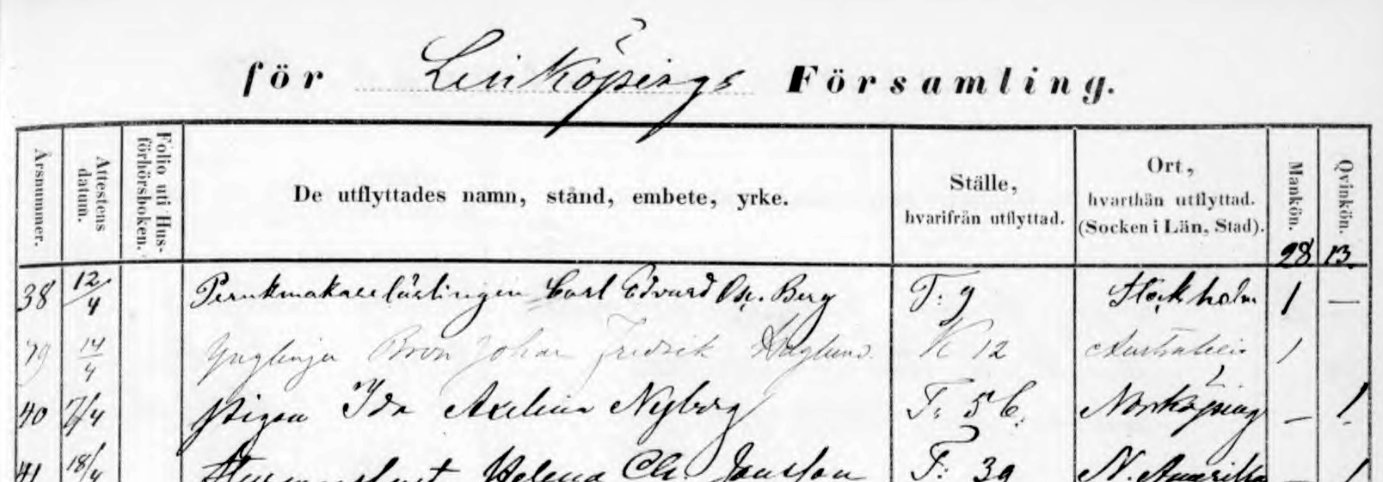 för Linköpings Församling.
Årsnummer. Attestens datum. Folio uti Husförhörsboken. De utflyttades namn, stånd, embete, yrke. Ställe, hvarifrån utflyttad. Ort, hvarthän utflyttad. (Socken i Län, Stad). Mankön. Qvinkön.
28 13.
38 12/4 Perukmakarelärlingen Carl Edvard Osc. Berg T: 9 Stockholm 1 —
39 14/4 Ynglingen Johan Fredrik Haglund K 12 Australien 1
40 7/4 Pigan Ida Axelina Nyberg F: 56. Norrköping — 1
41 18/4 Helena Ch. Jonsson F: 39 N. Amerika — 1